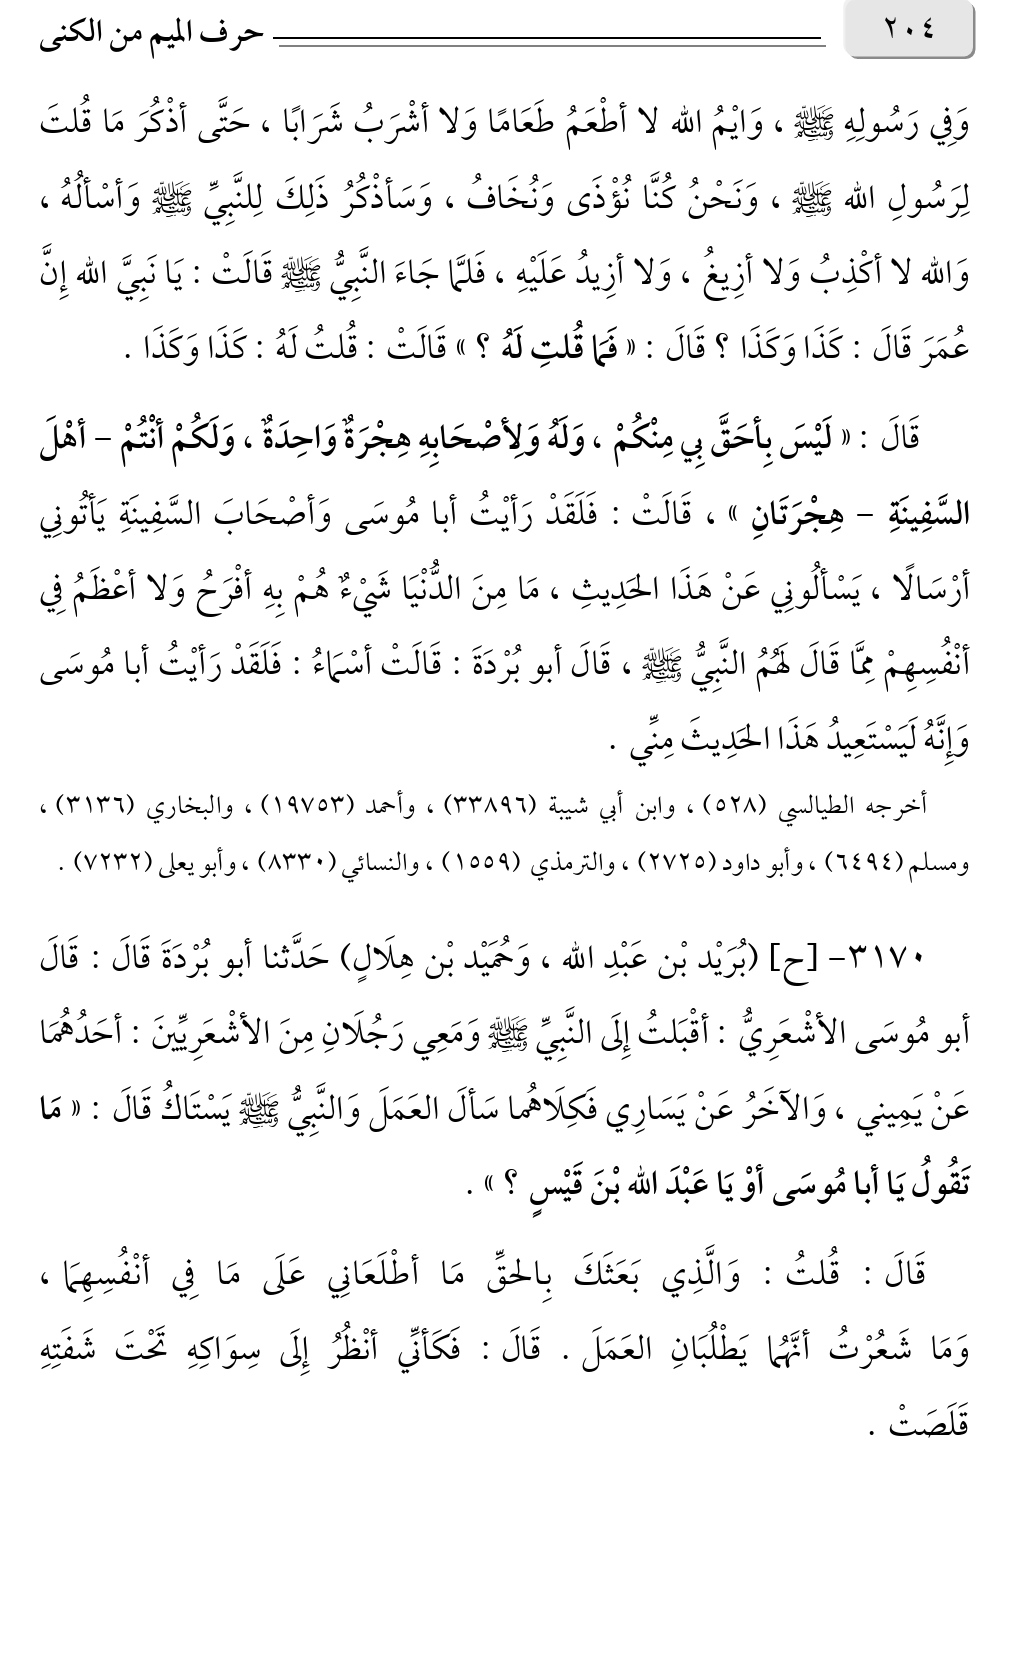 ٢٠٤
حرف الميم من الكنى
وَفِي رَسُولِهِ ﷺ ، وَايْمُ الله لا أطْعَمُ طَعَامًا وَلا أشْرَبُ شَرَابًا ، حَتَّى أذْكُرَ مَا قُلتَ
لِرَسُولِ الله ﷺ ، وَنَحْنُ كُنَّا نُؤْذَى وَنُخَافُ ، وَسَأذْكُرُ ذَلِكَ لِلنَّبِيِّ ﷺ وَأسْألُهُ ،
وَالله لا أكْذِبُ وَلا أزِيغُ ، وَلا أزِيدُ عَلَيْهِ ، فَلمَّا جَاءَ النَّبِيُّ ﷺ قَالَتْ : يَا نَبِيَّ الله إِنَّ
عُمَرَ قَالَ : كَذَا وَكَذَا ؟ قَالَ : « فَمَا قُلتِ لَهُ ؟ » قَالَتْ : قُلتُ لَهُ : كَذَا وَكَذَا .
قَالَ : « لَيْسَ بِأحَقَّ بِي مِنْكُمْ ، وَلَهُ وَلِأصْحَابِهِ هِجْرَةٌ وَاحِدَةٌ ، وَلَكُمْ أنْتُمْ – أهْلَ
السَّفِينَةِ – هِجْرَتَانِ » ، قَالَتْ : فَلَقَدْ رَأيْتُ أبا مُوسَى وَأصْحَابَ السَّفِينَةِ يَأتُونِي
أرْسَالًا ، يَسْألُونِي عَنْ هَذَا الحَدِيثِ ، مَا مِنَ الدُّنْيَا شَيْءٌ هُمْ بِهِ أفْرَحُ وَلا أعْظَمُ فِي
أنْفُسِهِمْ مِمَّا قَالَ لَهُمُ النَّبِيُّ ﷺ ، قَالَ أبو بُرْدَةَ : قَالَتْ أسْمَاءُ : فَلَقَدْ رَأيْتُ أبا مُوسَى
وَإِنَّهُ لَيَسْتَعِيدُ هَذَا الحَدِيثَ مِنِّي .
أخرجه الطيالسي (٥٢٨) ، وابن أبي شيبة (٣٣٨٩٦) ، وأحمد (١٩٧٥٣) ، والبخاري (٣١٣٦) ،
ومسلم (٦٤٩٤) ، وأبو داود (٢٧٢٥) ، والترمذي (١٥٥٩) ، والنسائي (٨٣٣٠) ، وأبو يعلى (٧٢٣٢) .
٣١٧٠– [ح] (بُرَيْد بْن عَبْدِ الله ، وَحُمَيْد بْن هِلَالٍ) حَدَّثنا أبو بُرْدَةَ قَالَ : قَالَ
أبو مُوسَى الأشْعَرِيُّ : أقْبَلتُ إِلَى النَّبِيِّ ﷺ وَمَعِي رَجُلَانِ مِنَ الأشْعَرِيِّينَ : أحَدُهُمَا
عَنْ يَمِيني ، وَالآخَرُ عَنْ يَسَارِي فَكِلَاهُما سَألَ العَمَلَ وَالنَّبِيُّ ﷺ يَسْتَاكُ قَالَ : « مَا
تَقُولُ يَا أبا مُوسَى أوْ يَا عَبْدَ الله بْنَ قَيْسٍ ؟ » .
قَالَ : قُلتُ : وَالَّذِي بَعَثَكَ بِالحقِّ مَا أطْلَعَانِي عَلَى مَا فِي أنْفُسِهِمَا ،
وَمَا شَعُرْتُ أنَّهُما يَطْلُبَانِ العَمَلَ . قَالَ : فَكَأنِّي أنْظُرُ إِلَى سِوَاكِهِ تَحْتَ شَفَتِهِ
قَلَصَتْ .